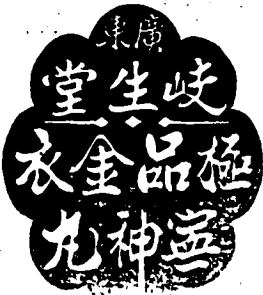 廣東
岐生堂
極品金衣
寧神丸